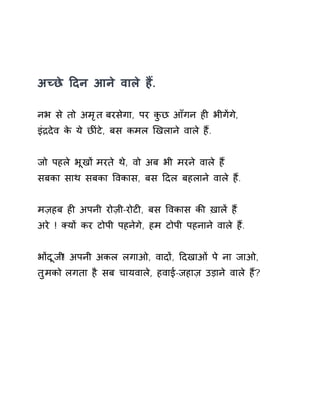 अच्छे दिन आने वाले हैं.
नभ से तो अमृत बरसेगा, पर कुछ आँगन ही भीगेंगे,
इंद्रदेव के ये छींटे, बस कमल खिलाने वाले हैं.
जो पहले भूखों मरते थे, वो अब भी मरने वाले हैं
सबका साथ सबका विकास, बस दिल बहलाने वाले हैं.
मज़हब ही अपनी रोज़ी-रोटी, बस विकास की ख़ालें हैं
अरे ! क्यों कर टोपी पहनेगे, हम टोपी पहनाने वाले हैं.
भोंदूजी! अपनी अकल लगाओ, वादों, दिखाओं पे ना जाओ,
तुमको लगता है सब चायवाले, हवाई-जहाज़ उड़ाने वाले हैं?